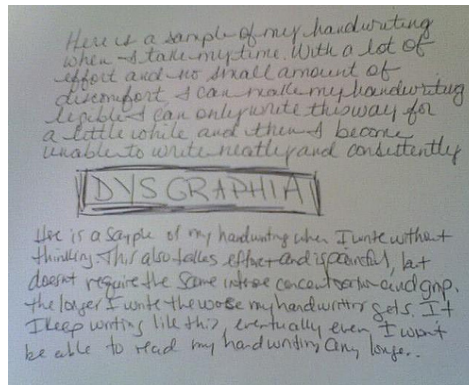 Here is a sample of my handwriting
when I take my time. With a lot of
effort and no small amount of
discomfort, I can make my handwriting
legible. I can only write this way for
a little while and then I become
unable to write neatly and consistently
DYSGRAPHIA
Here is a sample of my handwriting when I write without
thinking. This also takes effort and is painful, but
doesnt require the same intense concentration and grip.
the longer I write the worse my handwriting gets. If
I keep writing like this, eventually even I won't
be able to read my handwriting any longer..